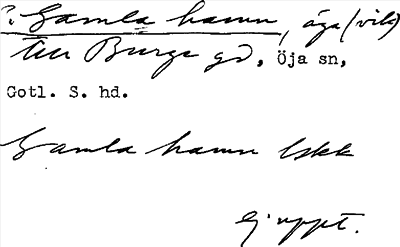 ?. Gamla hamn, äga (vik)
till Burge gd, Öja sn,
Gotl. S. hd.
Gamla hamn Iskk
Ej uppt.